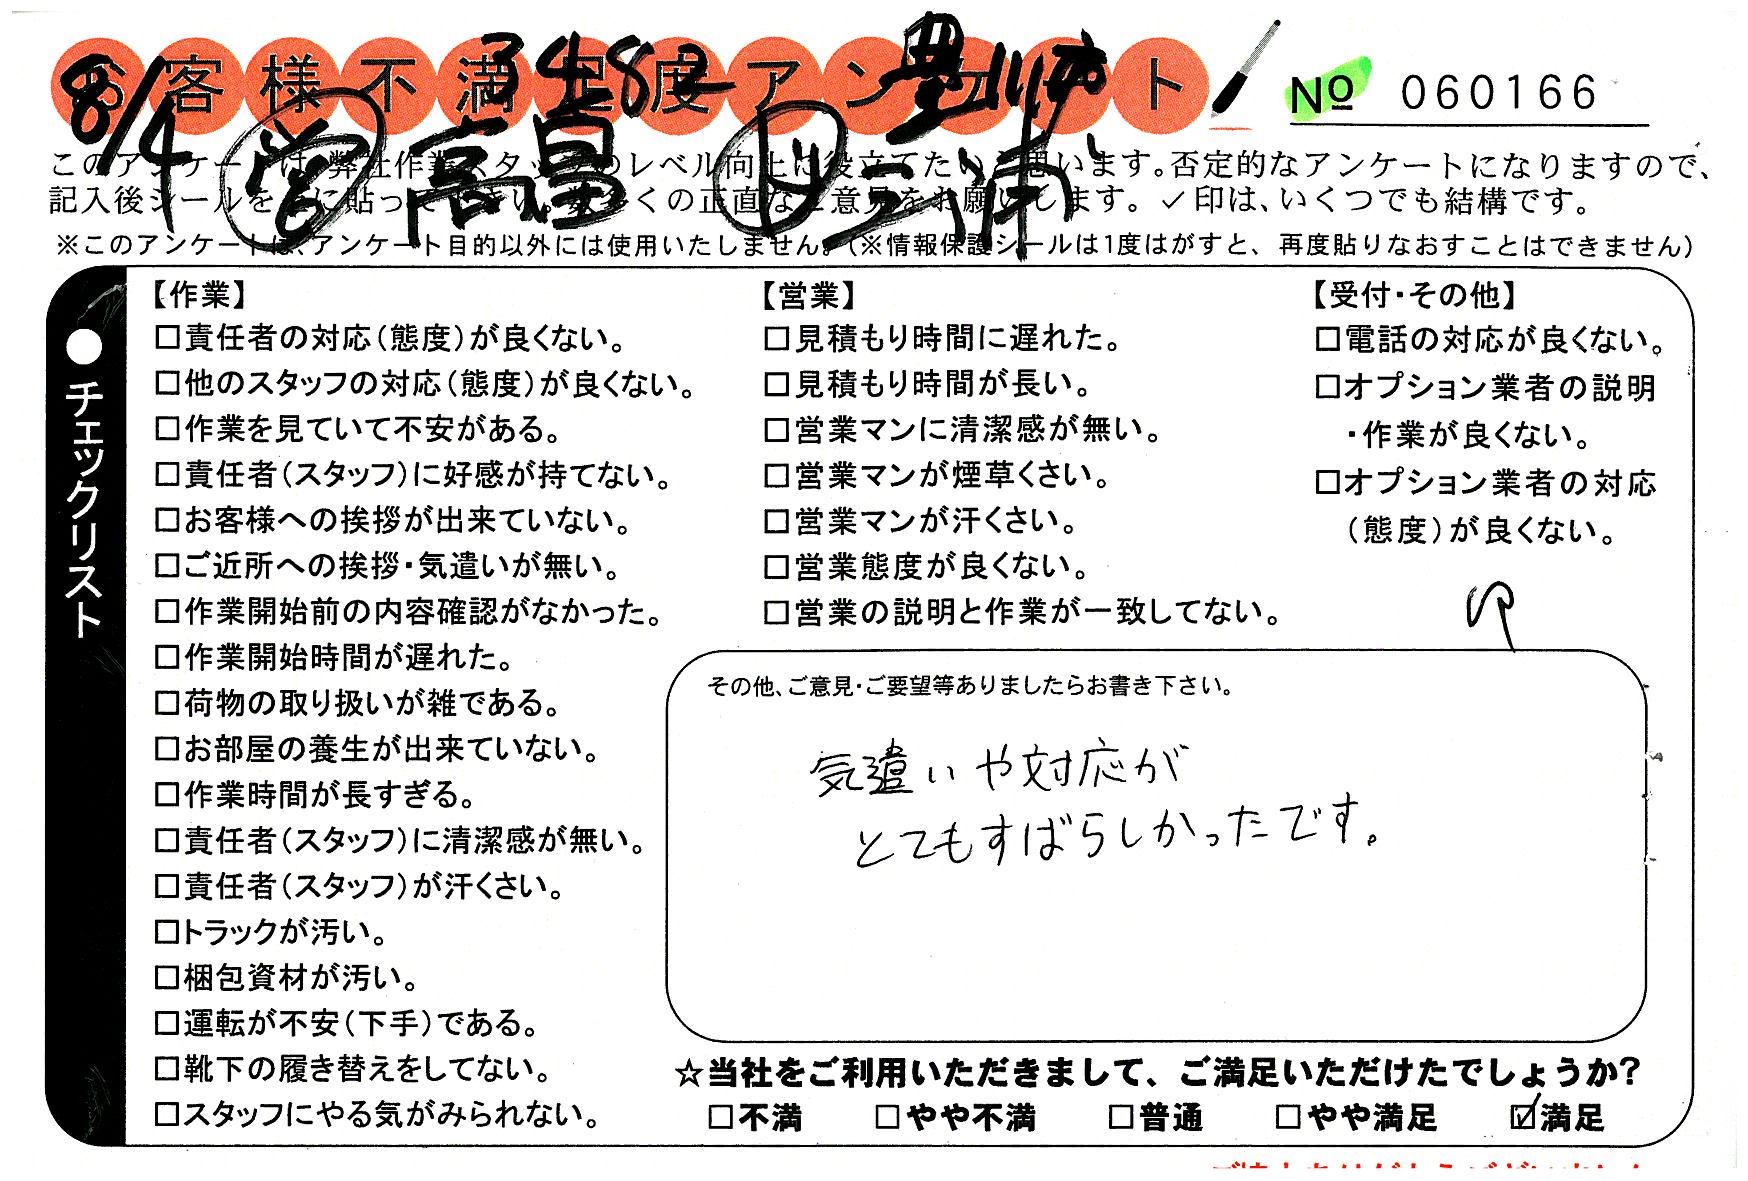 お客様不満足度アンケート
No 060166
8/4 営 高畠 3482 日 三浦 豊川市
このアンケートは、弊社作業スタッフのレベル向上に役立てたいと思います。否定的なアンケートになりますので、
記入後シールを上に貼って下さい。数多くの正直なご意見をお願いします。✓印は、いくつでも結構です。
※このアンケートは、アンケート目的以外には使用いたしません。(※情報保護シールは1度はがすと、再度貼りなおすことはできません)
●チェックリスト
【作業】
□責任者の対応(態度)が良くない。
□他のスタッフの対応(態度)が良くない。
□作業を見ていて不安がある。
□責任者(スタッフ)に好感が持てない。
□お客様への挨拶が出来ていない。
□ご近所への挨拶・気遣いが無い。
□作業開始前の内容確認がなかった。
□作業開始時間が遅れた。
□荷物の取り扱いが雑である。
□お部屋の養生が出来ていない。
□作業時間が長すぎる。
□責任者(スタッフ)に清潔感が無い。
□責任者(スタッフ)が汗くさい。
□トラックが汚い。
□梱包資材が汚い。
□運転が不安(下手)である。
□靴下の履き替えをしてない。
□スタッフにやる気がみられない。
【営業】
□見積もり時間に遅れた。
□見積もり時間が長い。
□営業マンに清潔感が無い。
□営業マンが煙草くさい。
□営業マンが汗くさい。
□営業態度が良くない。
□営業の説明と作業が一致してない。
【受付・その他】
□電話の対応が良くない。
□オプション業者の説明
・作業が良くない。
□オプション業者の対応
(態度)が良くない。
その他、ご意見・ご要望等ありましたらお書き下さい。
気遣いや対応が
とてもすばらしかったです。
☆当社をご利用いただきまして、ご満足いただけたでしょうか?
□不満 □やや不満 □普通 □やや満足 ☑満足